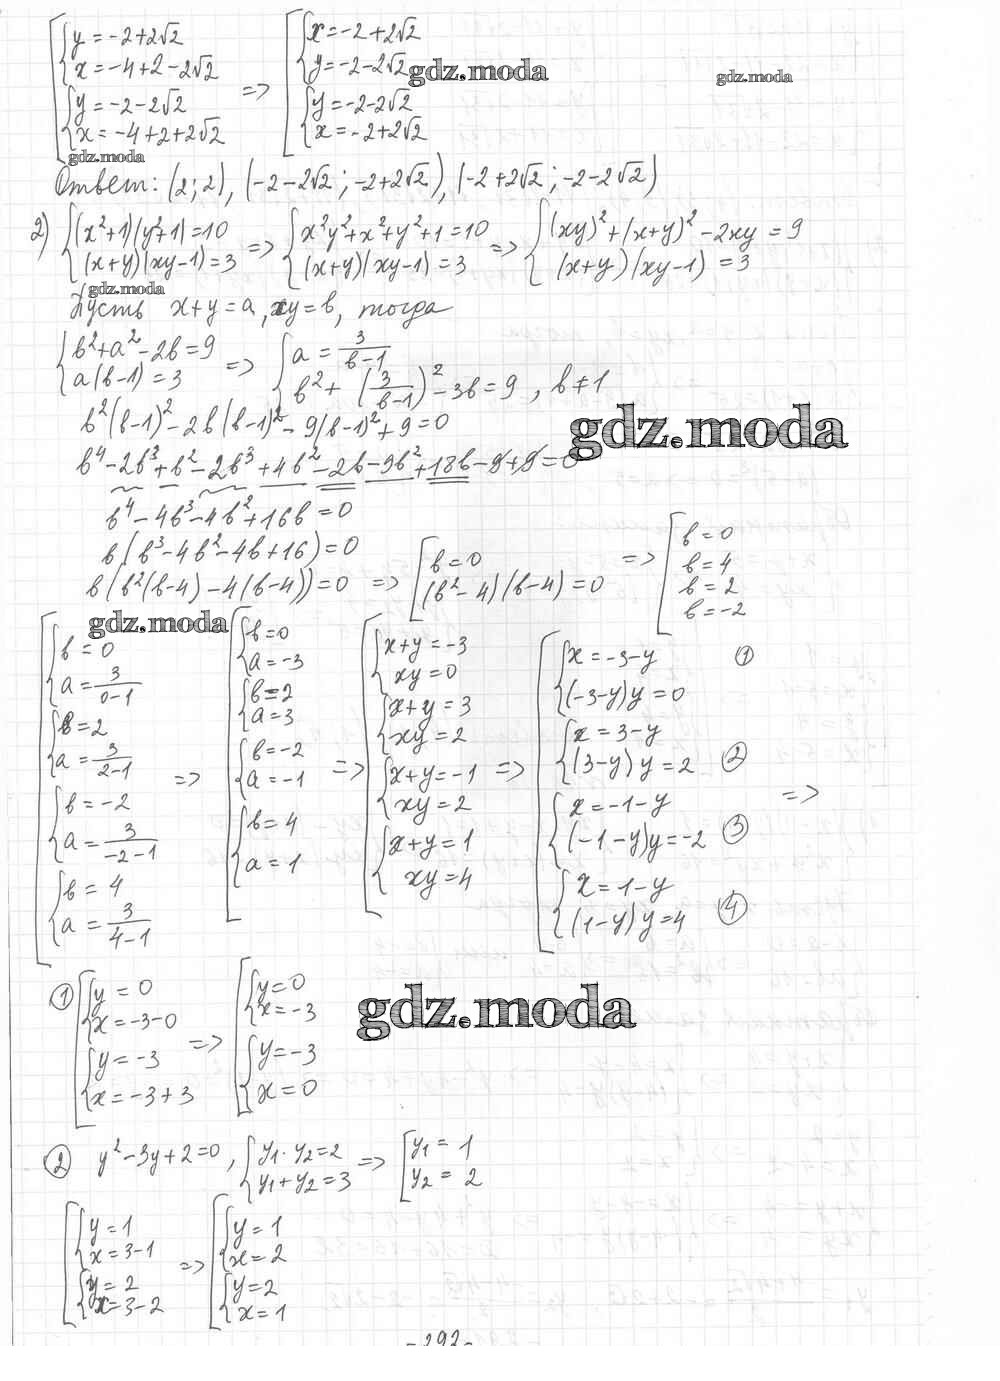 [ { y = -2+2√2
x = -4+2-2√2
{ y = -2-2√2
x = -4+2+2√2
=> [ { x = -2+2√2
y = -2-2√2
{ y = -2-2√2
x = -2+2√2
gdz.moda
gdz.moda
gdz.moda
Ответ: (2; 2), (-2-2√2; -2+2√2), (-2+2√2; -2-2√2)
2) { (x²+1)(y²+1)=10 => { x²y²+x²+y²+1=10 => { (xy)²+(x+y)²-2xy = 9
(x+y)(xy-1)=3 (x+y)(xy-1)=3 (x+y)(xy-1) = 3
gdz.moda
Пусть x+y=a, xy=b, тогда
{ b²+a²-2b=9 => { a = 3/(b-1)
a(b-1)=3 b²+(3/(b-1))²-3b=9, b≠1
b²(b-1)²-2b(b-1)²-9(b-1)²+9=0
gdz.moda
b⁴-2b³+b²-2b³+4b²-2b-9b²+18b-9+9=0
b⁴-4b³-4b²+16b=0
b(b³-4b²-4b+16)=0
b(b²(b-4)-4(b-4))=0 => [ b=0
(b²-4)(b-4)=0
=> [ b=0
b=4
b=2
b=-2
gdz.moda
[ { b=0
a=3/(0-1)
{ b=2
a=3/(2-1)
{ b=-2
a=3/(-2-1)
{ b=4
a=3/(4-1)
=> [ { b=0
a=-3
{ b=2
a=3
{ b=-2
a=-1
{ b=4
a=1
=> [ { x+y=-3
xy=0
{ x+y=3
xy=2
{ x+y=-1
xy=2
{ x+y=1
xy=4
=> [ { x=-3-y
(-3-y)y=0 ①
{ x=3-y
(3-y)y=2 ②
{ x=-1-y
(-1-y)y=-2 ③
{ x=1-y
(1-y)y=4 ④
=>
① [ { y=0
x=-3-0
{ y=-3
x=-3+3
=> [ { y=0
x=-3
{ y=-3
x=0
gdz.moda
② y²-3y+2=0, { y₁·y₂=2
y₁+y₂=3
=> [ y₁=1
y₂=2
[ { y=1
x=3-1
{ y=2
x=3-2
=> [ { y=1
x=2
{ y=2
x=1
-292-